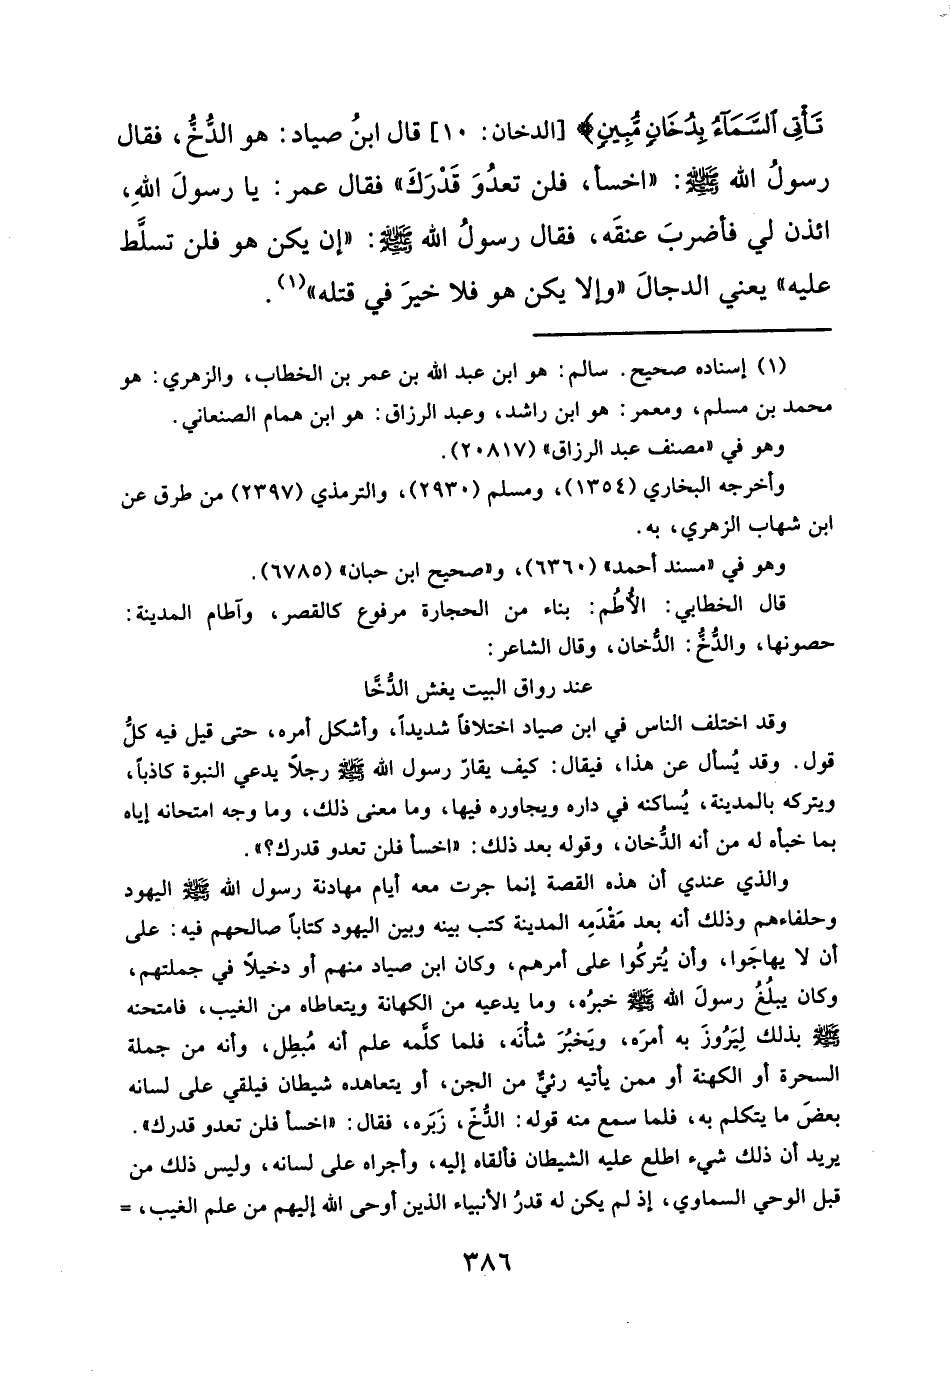 تَأْتِي ٱلسَّمَآءُ بِدُخَانٍ مُّبِينٍ﴾ [الدخان: ١٠] قال ابنُ صياد: هو الدُّخُّ، فقال
رسولُ الله ﷺ: «اخسأ، فلن تعدُوَ قَدْرَكَ» فقال عمر: يا رسولَ اللهِ،
ائذن لي فأضربَ عنقَه، فقال رسولُ الله ﷺ: «إن يكن هو فلن تسلَّط
عليه» يعني الدجالَ «وإلا يكن هو فلا خيرَ في قتله»(١).
(١) إسناده صحيح. سالم: هو ابن عبد الله بن عمر بن الخطاب، والزهري: هو
محمد بن مسلم، ومعمر: هو ابن راشد، وعبد الرزاق: هو ابن همام الصنعاني.
وهو في «مصنف عبد الرزاق» (٢٠٨١٧).
وأخرجه البخاري (١٣٥٤)، ومسلم (٢٩٣٠)، والترمذي (٢٣٩٧) من طرق عن
ابن شهاب الزهري، به.
وهو في «مسند أحمد» (٦٣٦٠)، و«صحيح ابن حبان» (٦٧٨٥).
قال الخطابي: الأُطُم: بناء من الحجارة مرفوع كالقصر، وآطام المدينة:
حصونها، والدُّخُّ: الدُّخان، وقال الشاعر:
عند رواق البيت يغش الدُّخَّا
وقد اختلف الناس في ابن صياد اختلافاً شديداً، وأشكل أمره، حتى قيل فيه كلُّ
قول. وقد يُسأل عن هذا، فيقال: كيف يقارّ رسول الله ﷺ رجلاً يدعي النبوة كاذباً،
ويتركه بالمدينة، يُساكنه في داره ويجاوره فيها، وما معنى ذلك، وما وجه امتحانه إياه
بما خبأه له من أنه الدُّخان، وقوله بعد ذلك: «اخسأ فلن تعدو قدرك؟».
والذي عندي أن هذه القصة إنما جرت معه أيام مهادنة رسول الله ﷺ اليهود
وحلفاءهم وذلك أنه بعد مَقْدَمِه المدينة كتب بينه وبين اليهود كتاباً صالحهم فيه: على
أن لا يهاجَوا، وأن يُتركُوا على أمرهم، وكان ابن صياد منهم أو دخيلاً في جملتهم،
وكان يبلُغُ رسولَ الله ﷺ خبرُه، وما يدعيه من الكهانة ويتعاطاه من الغيب، فامتحنه
ﷺ بذلك لِيَرُوزَ به أمرَه، ويَخبُرَ شأنَه، فلما كلَّمه علم أنه مُبطِل، وأنه من جملة
السحرة أو الكهنة أو ممن يأتيه رئيٌّ من الجن، أو يتعاهده شيطان فيلقي على لسانه
بعضَ ما يتكلم به، فلما سمع منه قوله: الدُّخّ، زَبَره، فقال: «اخسأ فلن تعدو قدرك».
يريد أن ذلك شيء اطلع عليه الشيطان فألقاه إليه، وأجراه على لسانه، وليس ذلك من
قبل الوحي السماوي، إذ لم يكن له قدرُ الأنبياء الذين أوحى الله إليهم من علم الغيب، =
٣٨٦